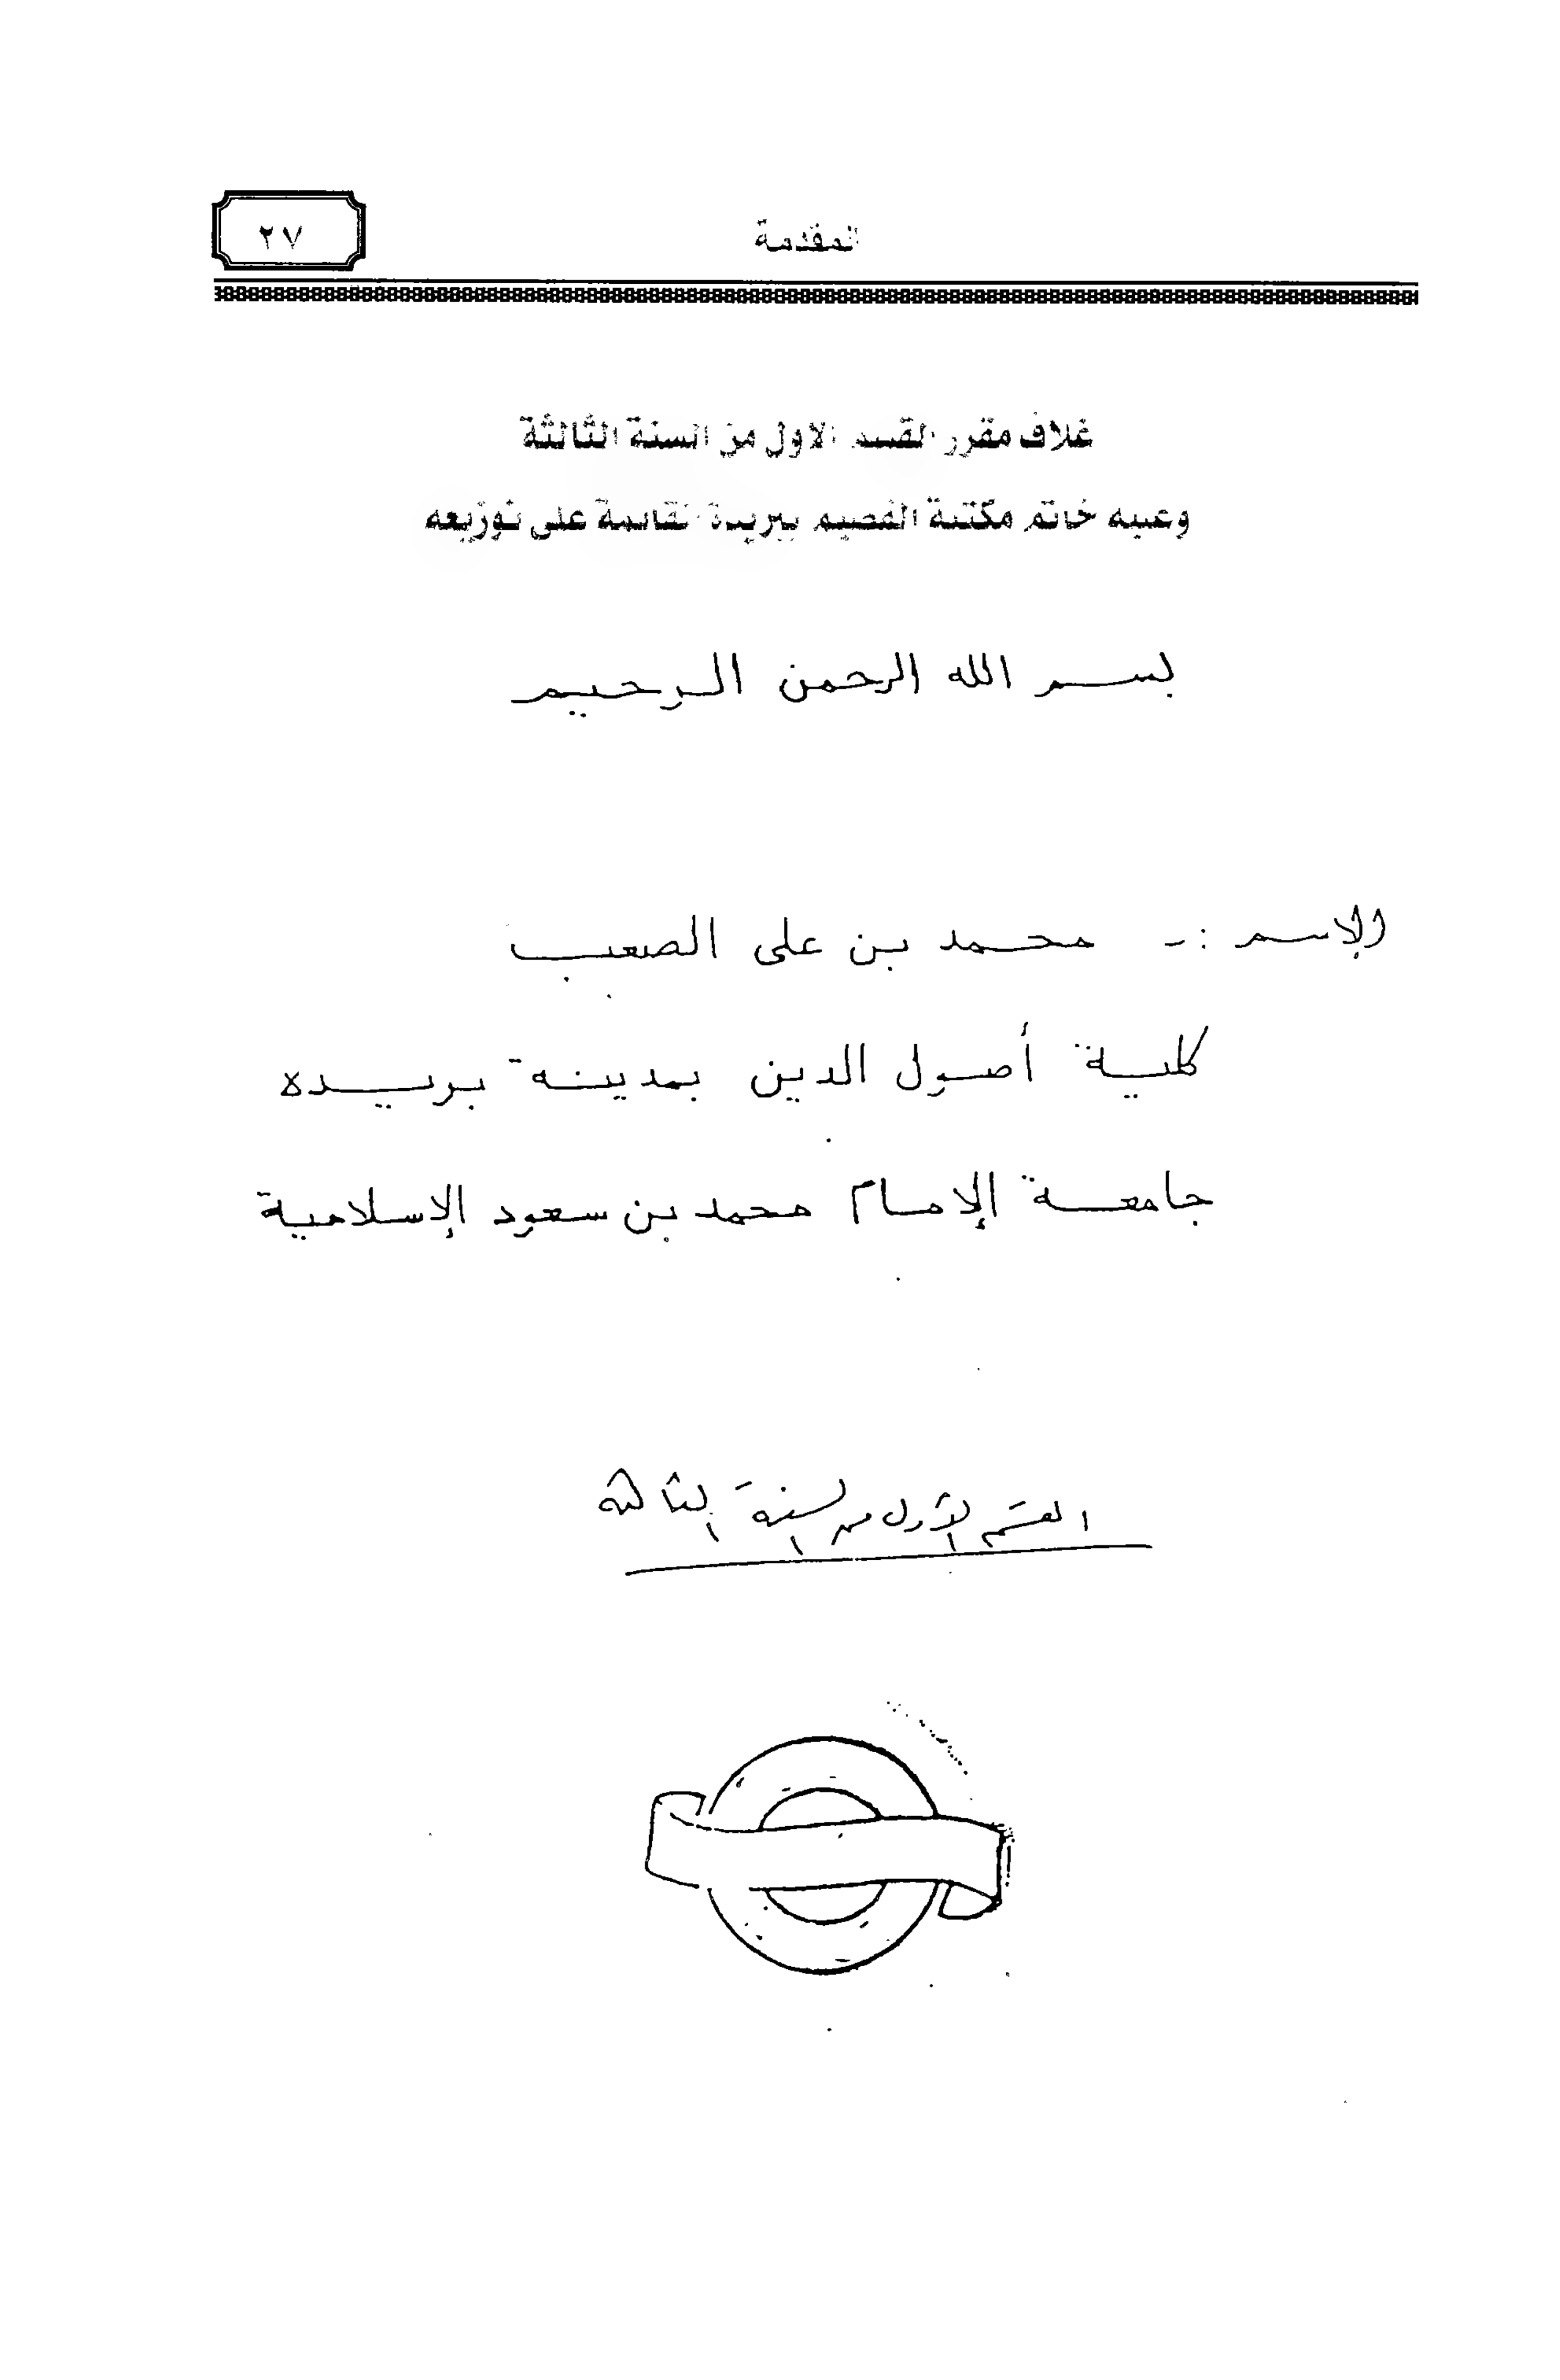 المقدمة
٢٧
غلاف مقرر القسم الأول من السنة الثالثة
وعليه خاتم مكتبة القصيم ببريدة القائمة على توزيعه
بسم الله الرحمن الرحيم
الإسم :- محمد بن على الصعب
كلية أصول الدين بمدينة بريده
جامعة الإمام محمد بن سعود الإسلامية
القسم الأول من السنة الثالثة